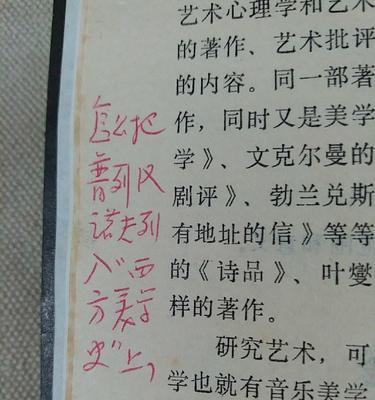 怎么把
普列汉
诺夫列
入“西
方美学
史”上，
艺术心理学和艺术
的著作、艺术批评
的内容。同一部著
作，同时又是美学
学》、文克尔曼的
剧评》、勃兰兑斯
有地址的信》等等
的《诗品》、叶燮
样的著作。
研究艺术，可
学也就有音乐美学